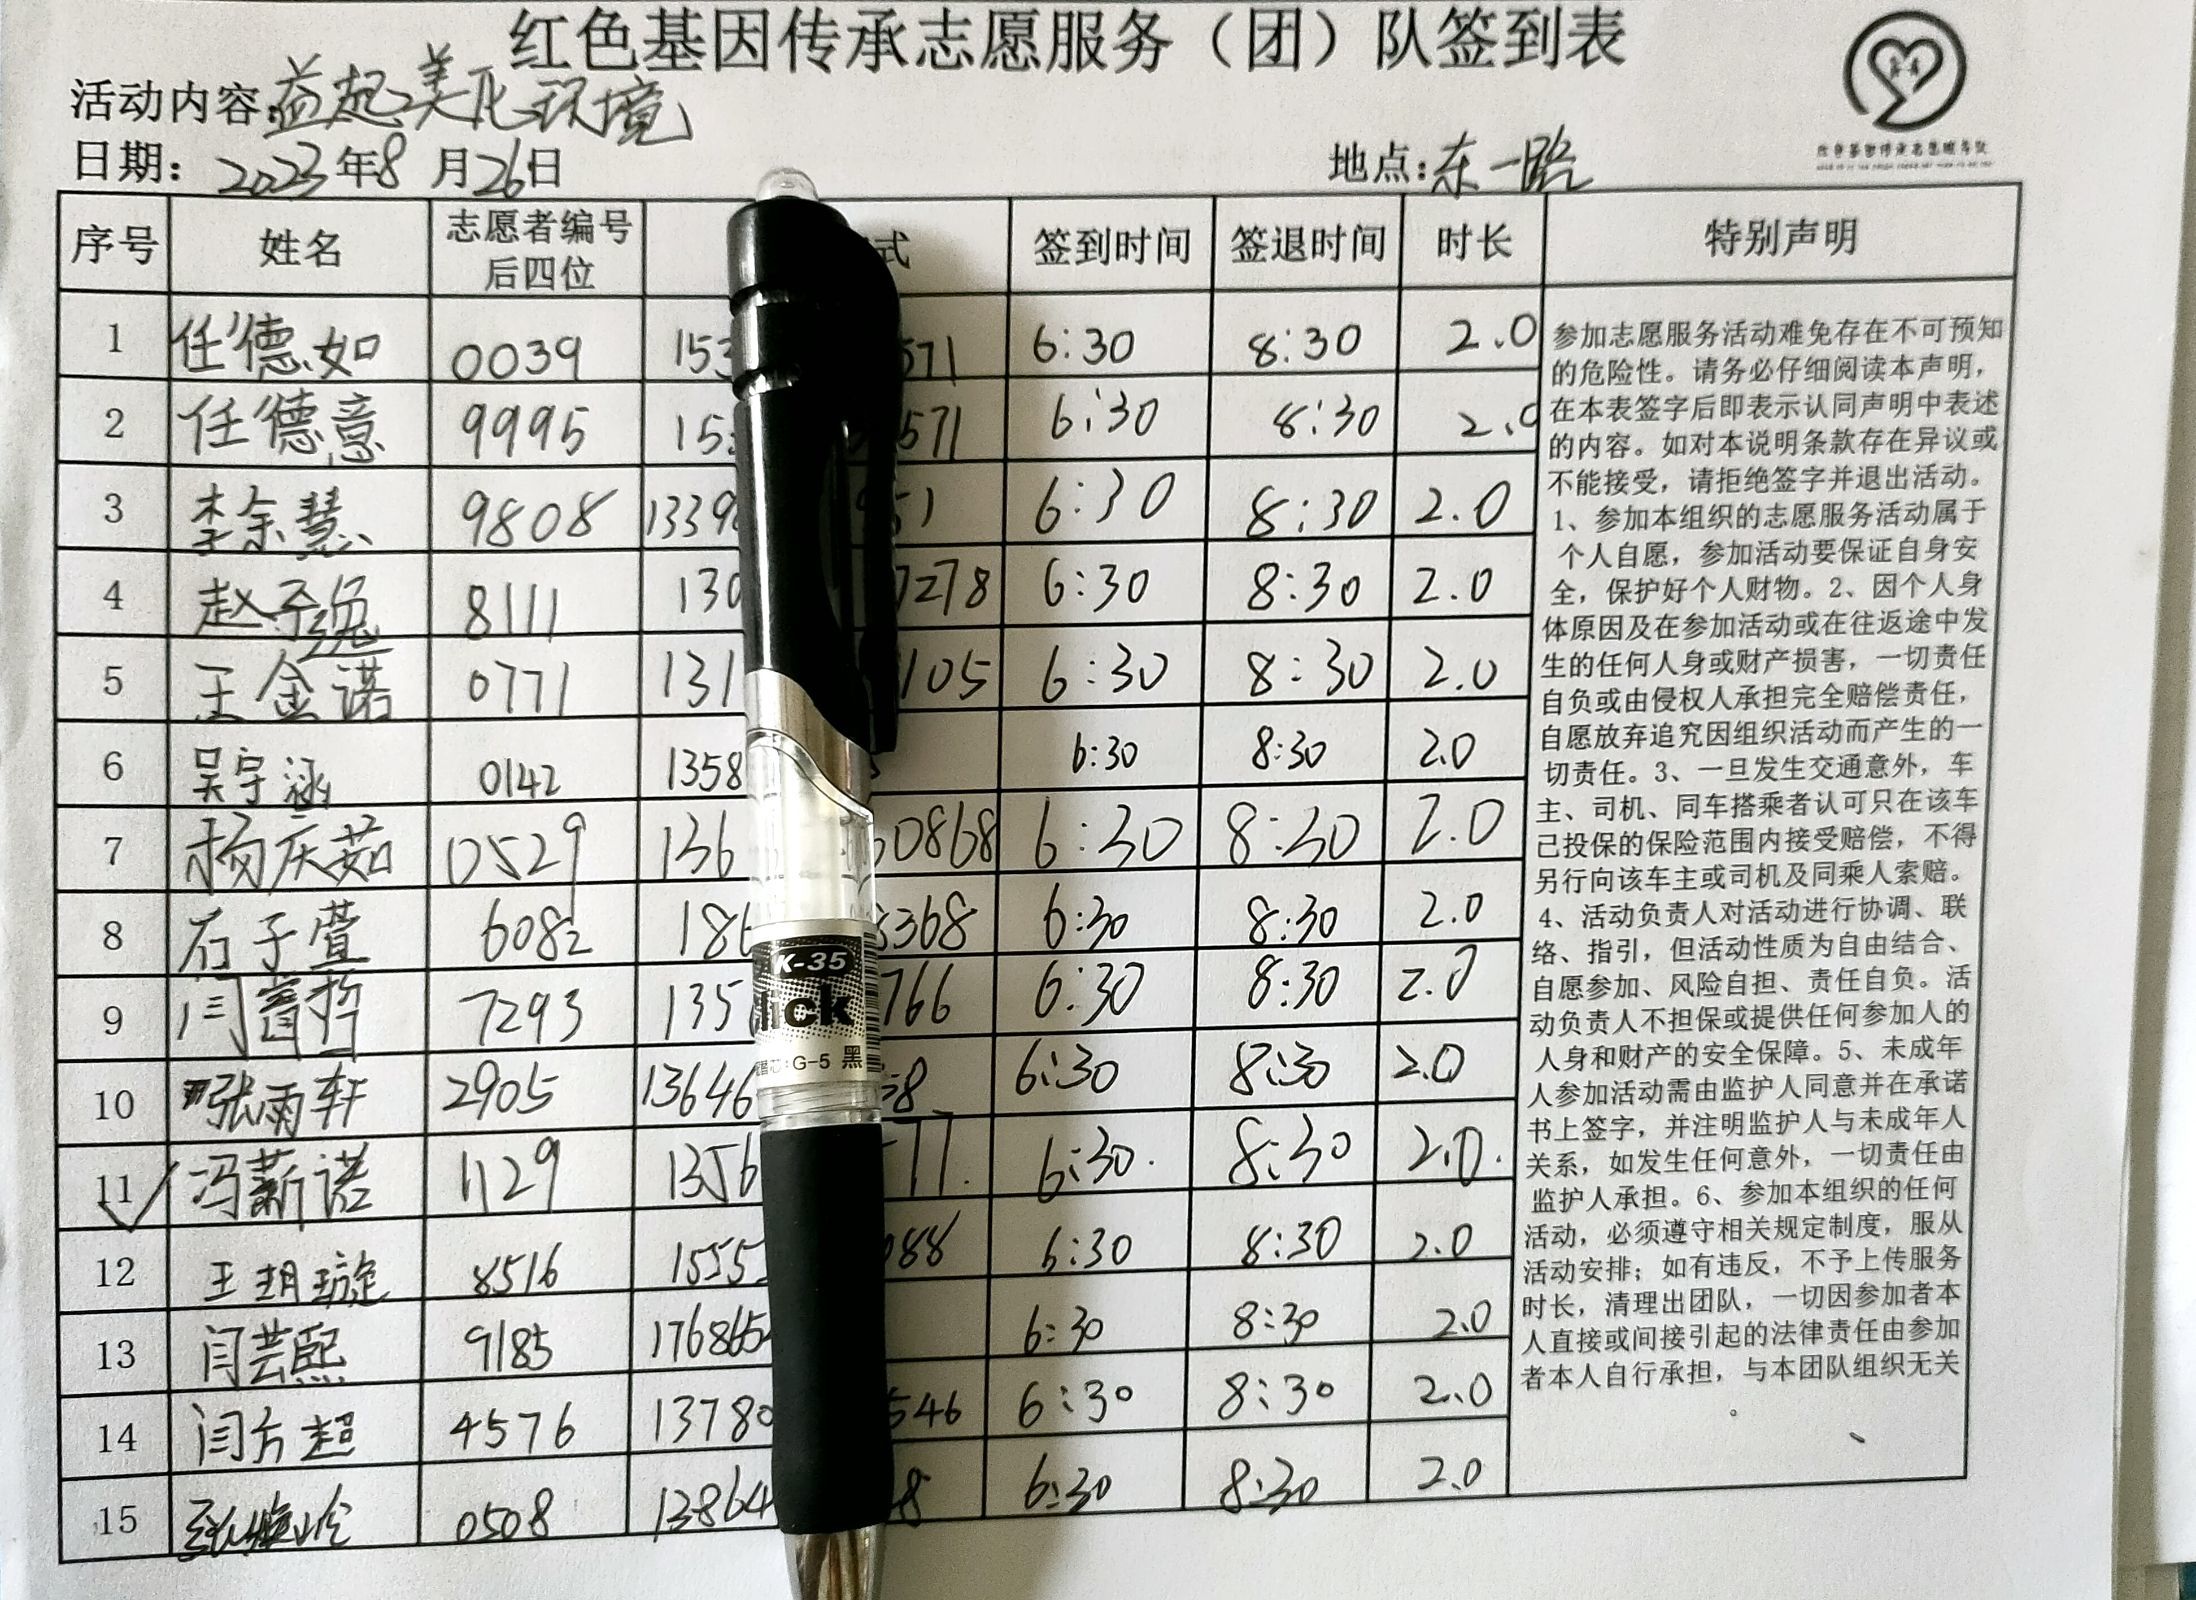 红色基因传承志愿服务（团）队签到表
活动内容:益起美化环境
日期：2023年8月26日 地点:东一路
序号 姓名 志愿者编号后四位 式 签到时间 签退时间 时长 特别声明
1 任德如 0039 153 571 6:30 8:30 2.0
2 任德意 9995 15 571 6:30 8:30 2.0
3 李余慧 9808 1339 51 6:30 8:30 2.0
4 赵子逸 8111 130 7278 6:30 8:30 2.0
5 王金诺 0771 131 105 6:30 8:30 2.0
6 吴宇涵 0142 1358 6:30 8:30 2.0
7 杨庆茹 0529 136 60868 6:30 8:30 2.0
8 石子萱 6082 186 3368 6:30 8:30 2.0
9 闫睿哲 7293 135 766 6:30 8:30 2.0
10 张雨轩 2905 13646 8 6:30 8:30 2.0
11 冯薪诺 1129 1356 77. 6:30. 8:30 2.0.
12 王玥璇 8516 1555 088 6:30 8:30 2.0
13 闫芸熙 9185 176865 6:30 8:30 2.0
14 闫方超 4576 13780 546 6:30 8:30 2.0
15 0508 13864 8 6:30 8:30 2.0
参加志愿服务活动难免存在不可预知
的危险性。请务必仔细阅读本声明，
在本表签字后即表示认同声明中表述
的内容。如对本说明条款存在异议或
不能接受，请拒绝签字并退出活动。
1、参加本组织的志愿服务活动属于
个人自愿，参加活动要保证自身安
全，保护好个人财物。2、因个人身
体原因及在参加活动或在往返途中发
生的任何人身或财产损害，一切责任
自负或由侵权人承担完全赔偿责任，
自愿放弃追究因组织活动而产生的一
切责任。3、一旦发生交通意外，车
主、司机、同车搭乘者认可只在该车
己投保的保险范围内接受赔偿，不得
另行向该车主或司机及同乘人索赔。
4、活动负责人对活动进行协调、联
络、指引，但活动性质为自由结合、
自愿参加、风险自担、责任自负。活
动负责人不担保或提供任何参加人的
人身和财产的安全保障。5、未成年
人参加活动需由监护人同意并在承诺
书上签字，并注明监护人与未成年人
关系，如发生任何意外，一切责任由
监护人承担。6、参加本组织的任何
活动，必须遵守相关规定制度，服从
活动安排；如有违反，不予上传服务
时长，清理出团队，一切因参加者本
人直接或间接引起的法律责任由参加
者本人自行承担，与本团队组织无关
。
K-35
lick
G-5 黑